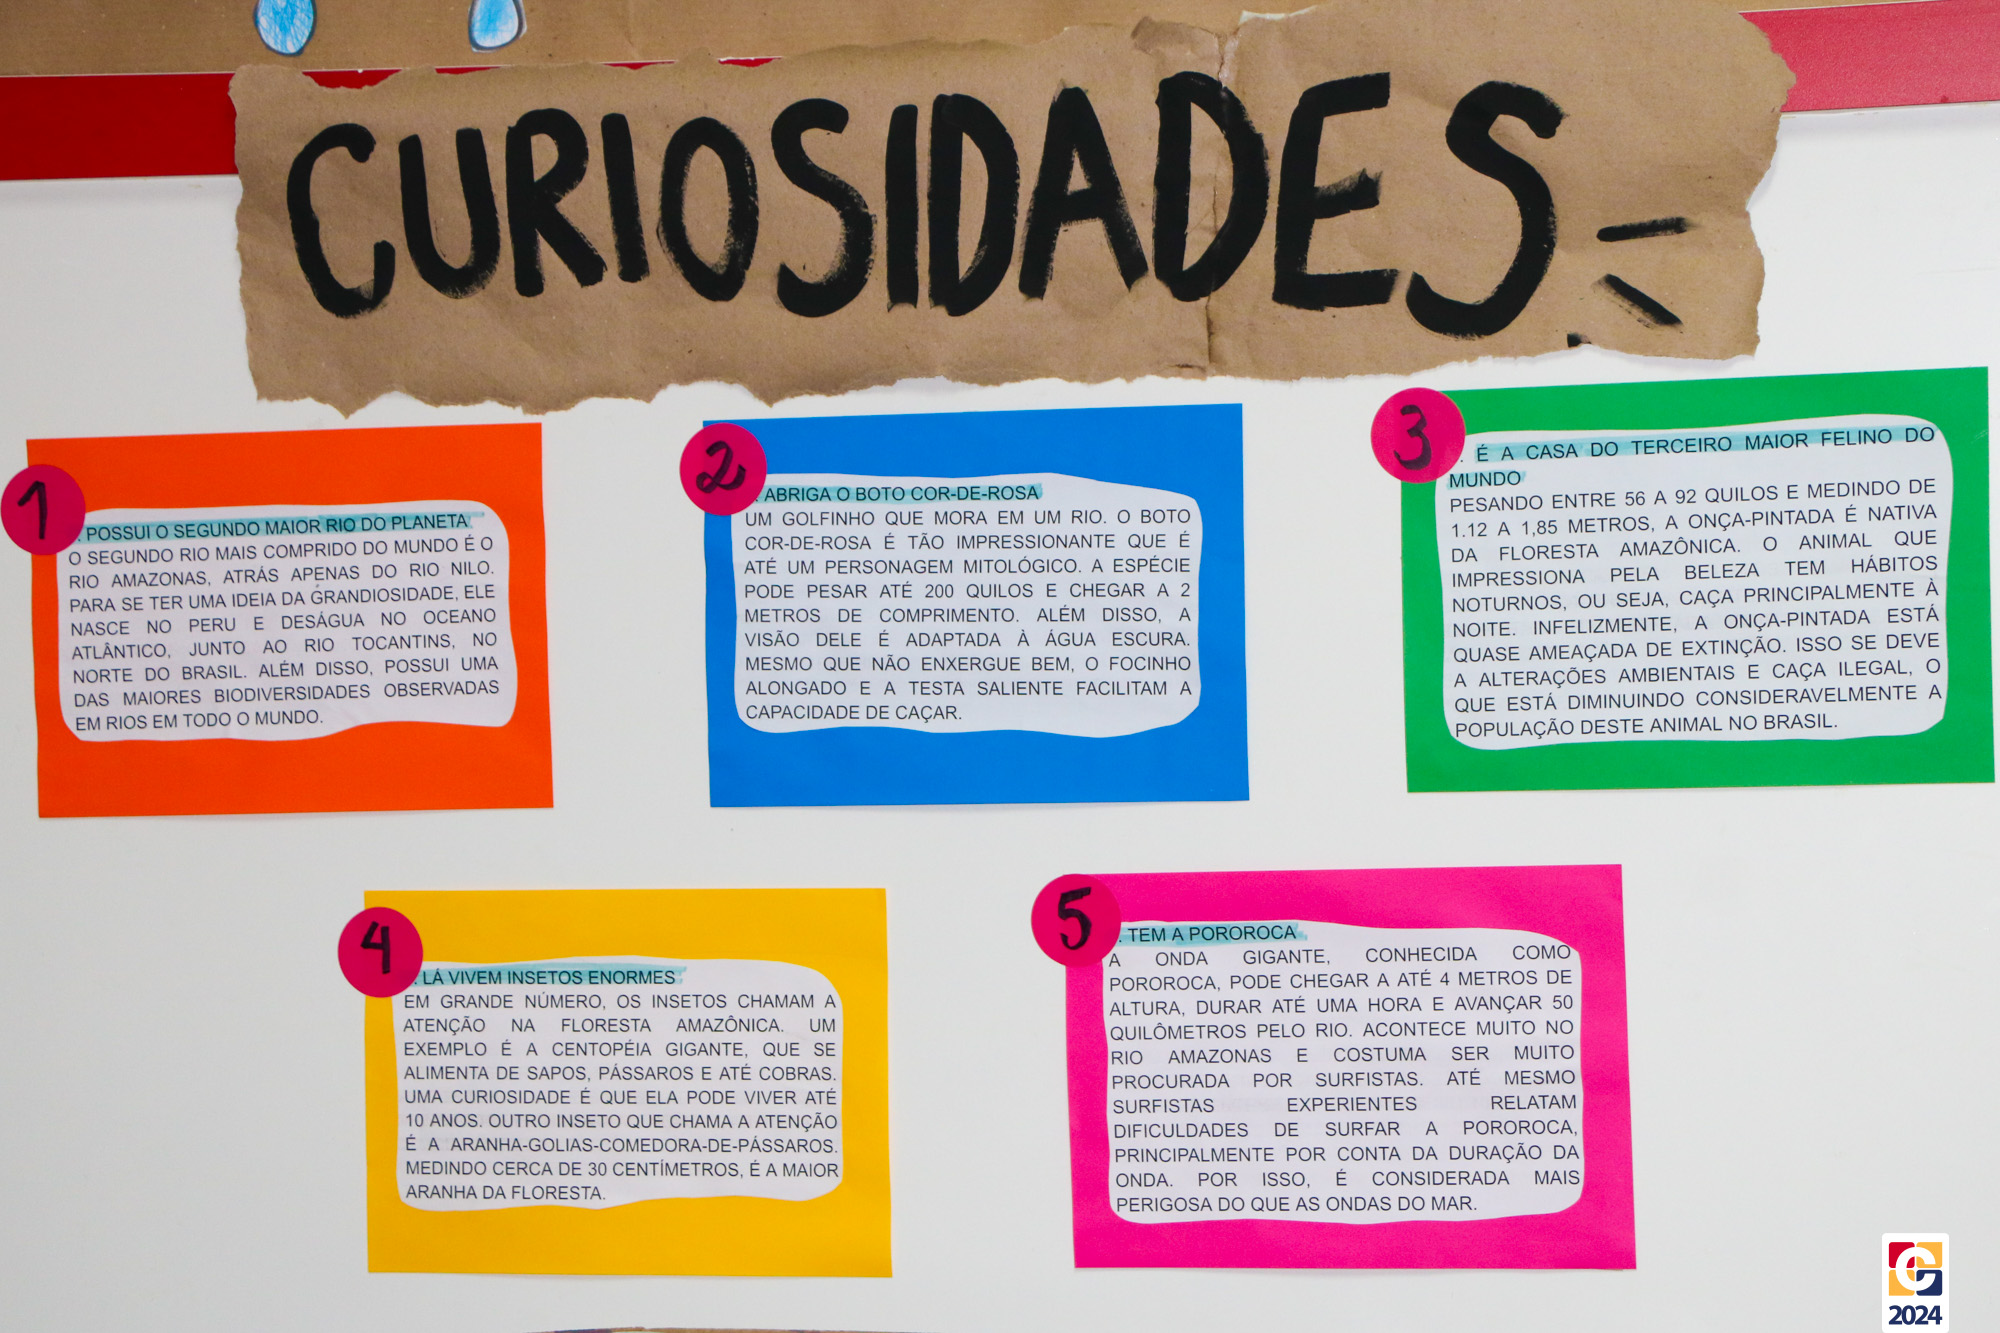 CURIOSIDADES
1
. POSSUI O SEGUNDO MAIOR RIO DO PLANETA
O SEGUNDO RIO MAIS COMPRIDO DO MUNDO É O
RIO AMAZONAS, ATRÁS APENAS DO RIO NILO.
PARA SE TER UMA IDEIA DA GRANDIOSIDADE, ELE
NASCE NO PERU E DESÁGUA NO OCEANO
ATLÂNTICO, JUNTO AO RIO TOCANTINS, NO
NORTE DO BRASIL. ALÉM DISSO, POSSUI UMA
DAS MAIORES BIODIVERSIDADES OBSERVADAS
EM RIOS EM TODO O MUNDO.
2
. ABRIGA O BOTO COR-DE-ROSA
UM GOLFINHO QUE MORA EM UM RIO. O BOTO
COR-DE-ROSA É TÃO IMPRESSIONANTE QUE É
ATÉ UM PERSONAGEM MITOLÓGICO. A ESPÉCIE
PODE PESAR ATÉ 200 QUILOS E CHEGAR A 2
METROS DE COMPRIMENTO. ALÉM DISSO, A
VISÃO DELE É ADAPTADA À ÁGUA ESCURA.
MESMO QUE NÃO ENXERGUE BEM, O FOCINHO
ALONGADO E A TESTA SALIENTE FACILITAM A
CAPACIDADE DE CAÇAR.
3
. É A CASA DO TERCEIRO MAIOR FELINO DO
MUNDO
PESANDO ENTRE 56 A 92 QUILOS E MEDINDO DE
1.12 A 1,85 METROS, A ONÇA-PINTADA É NATIVA
DA FLORESTA AMAZÔNICA. O ANIMAL QUE
IMPRESSIONA PELA BELEZA TEM HÁBITOS
NOTURNOS, OU SEJA, CAÇA PRINCIPALMENTE À
NOITE. INFELIZMENTE, A ONÇA-PINTADA ESTÁ
QUASE AMEAÇADA DE EXTINÇÃO. ISSO SE DEVE
A ALTERAÇÕES AMBIENTAIS E CAÇA ILEGAL, O
QUE ESTÁ DIMINUINDO CONSIDERAVELMENTE A
POPULAÇÃO DESTE ANIMAL NO BRASIL.
4
. LÁ VIVEM INSETOS ENORMES
EM GRANDE NÚMERO, OS INSETOS CHAMAM A
ATENÇÃO NA FLORESTA AMAZÔNICA. UM
EXEMPLO É A CENTOPÉIA GIGANTE, QUE SE
ALIMENTA DE SAPOS, PÁSSAROS E ATÉ COBRAS.
UMA CURIOSIDADE É QUE ELA PODE VIVER ATÉ
10 ANOS. OUTRO INSETO QUE CHAMA A ATENÇÃO
É A ARANHA-GOLIAS-COMEDORA-DE-PÁSSAROS.
MEDINDO CERCA DE 30 CENTÍMETROS, É A MAIOR
ARANHA DA FLORESTA.
5
. TEM A POROROCA
A ONDA GIGANTE, CONHECIDA COMO
POROROCA, PODE CHEGAR A ATÉ 4 METROS DE
ALTURA, DURAR ATÉ UMA HORA E AVANÇAR 50
QUILÔMETROS PELO RIO. ACONTECE MUITO NO
RIO AMAZONAS E COSTUMA SER MUITO
PROCURADA POR SURFISTAS. ATÉ MESMO
SURFISTAS EXPERIENTES RELATAM
DIFICULDADES DE SURFAR A POROROCA,
PRINCIPALMENTE POR CONTA DA DURAÇÃO DA
ONDA. POR ISSO, É CONSIDERADA MAIS
PERIGOSA DO QUE AS ONDAS DO MAR.
G
2024